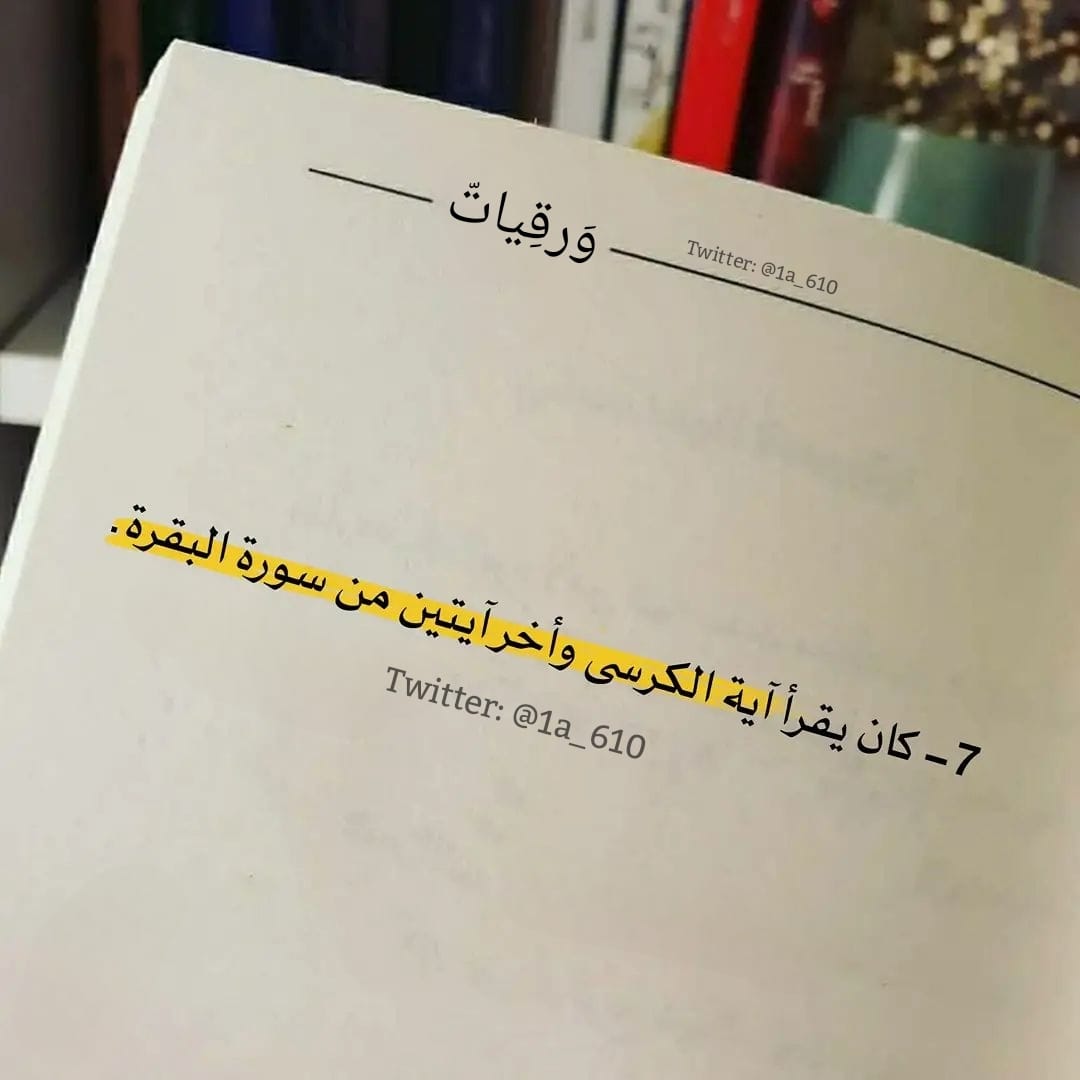 وَرقِياتّ
Twitter: @1a_610
7 ـ كان يقرأ آية الكرسى وأخر آيتين من سورة البقرة.
Twitter: @1a_610